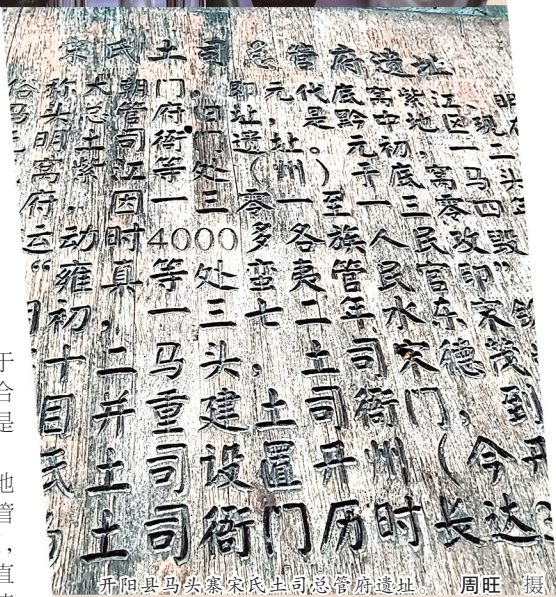 宋氏土司总管府遗址
称大朝门,即元代底窝紫江、明
头总管府旧址,是黔中地区现
明土司衙遗址。元初,一二
窝紫江等处(州)于底窝马头
府,因一三零一至一三零四
云动时4000多各族人民攻毁
“雍真等处蛮夷管民官印”
初,一三七二年水东宋钦
十二马头,土司宋德茂
目并重建土司衙门,到
氏土司设置开州(今开
土司衙门历时长达
开阳县马头寨宋氏土司总管府遗址。 周旺 摄
于
合
是
地
管
,
直